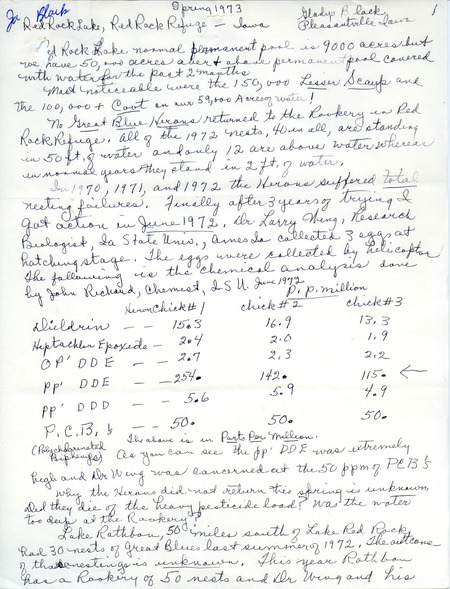 Ia Black
Spring 1973
Gladys Black 1
Red Rock Lake, Red Rock Refuge – Iowa
Pleasantville Iowa
Red Rock Lake normal permanent pool is 9000 acres but
we have 50,000 acres over & above permanent pool covered
with water for the past 2 months.
Most noticeable were the 150,000 Lesser Scaup and
the 100,000 + Coot on our 59,000 Acres of water!
No Great Blue Herons returned to the Rookery in Red
Rock Refuge. All of the 1972 nests, 40 in all, are standing
in 50 ft. of water and only 12 are above water whereas
in normal years they stand in 2 ft. of water.
In 1970, 1971, and 1972 the Herons suffered total
nesting failures. Finally after 3 years of trying I
got action in June 1972. Dr Larry Wing, Research
Biologist, Ia State Univ., Ames Ia collected 3 eggs at
hatching stage. The eggs were collected by helicopter
The following is the chemical analysis done
by John Richard, Chemist, I S U. June 1972
P. p. million
Heron Chick #1 chick #2 chick #3
Dieldrin – – 15.3 16.9 13.3
Heptachlor Epoxide – 2.4 2.0 1.9
OP' DDE – – 2.7 2.3 2.2
pp' DDE – – 254. 142. 115. ←
pp' DDD – – 5.6 5.9 4.9
P.C.B.'s – – 50. 50. 50.
(Polychlorinated Biphenyls) The above is in Parts Per Million.
As you can see the pp' DDE was extremely
high and Dr Wing was concerned at the 50 ppm of PCB's
Why the Herons did not return this spring is unknown.
Did they die of the heavy pesticide load? Was the water
too deep at the Rookery?
Lake Rathbun, 50 miles south of Lake Red Rock,
had 30 nests of Great Blues last summer of 1972. The outcome
of those nestings is unknown. This year Rathbun
has a Rookery of 50 nests and Dr Wing and his